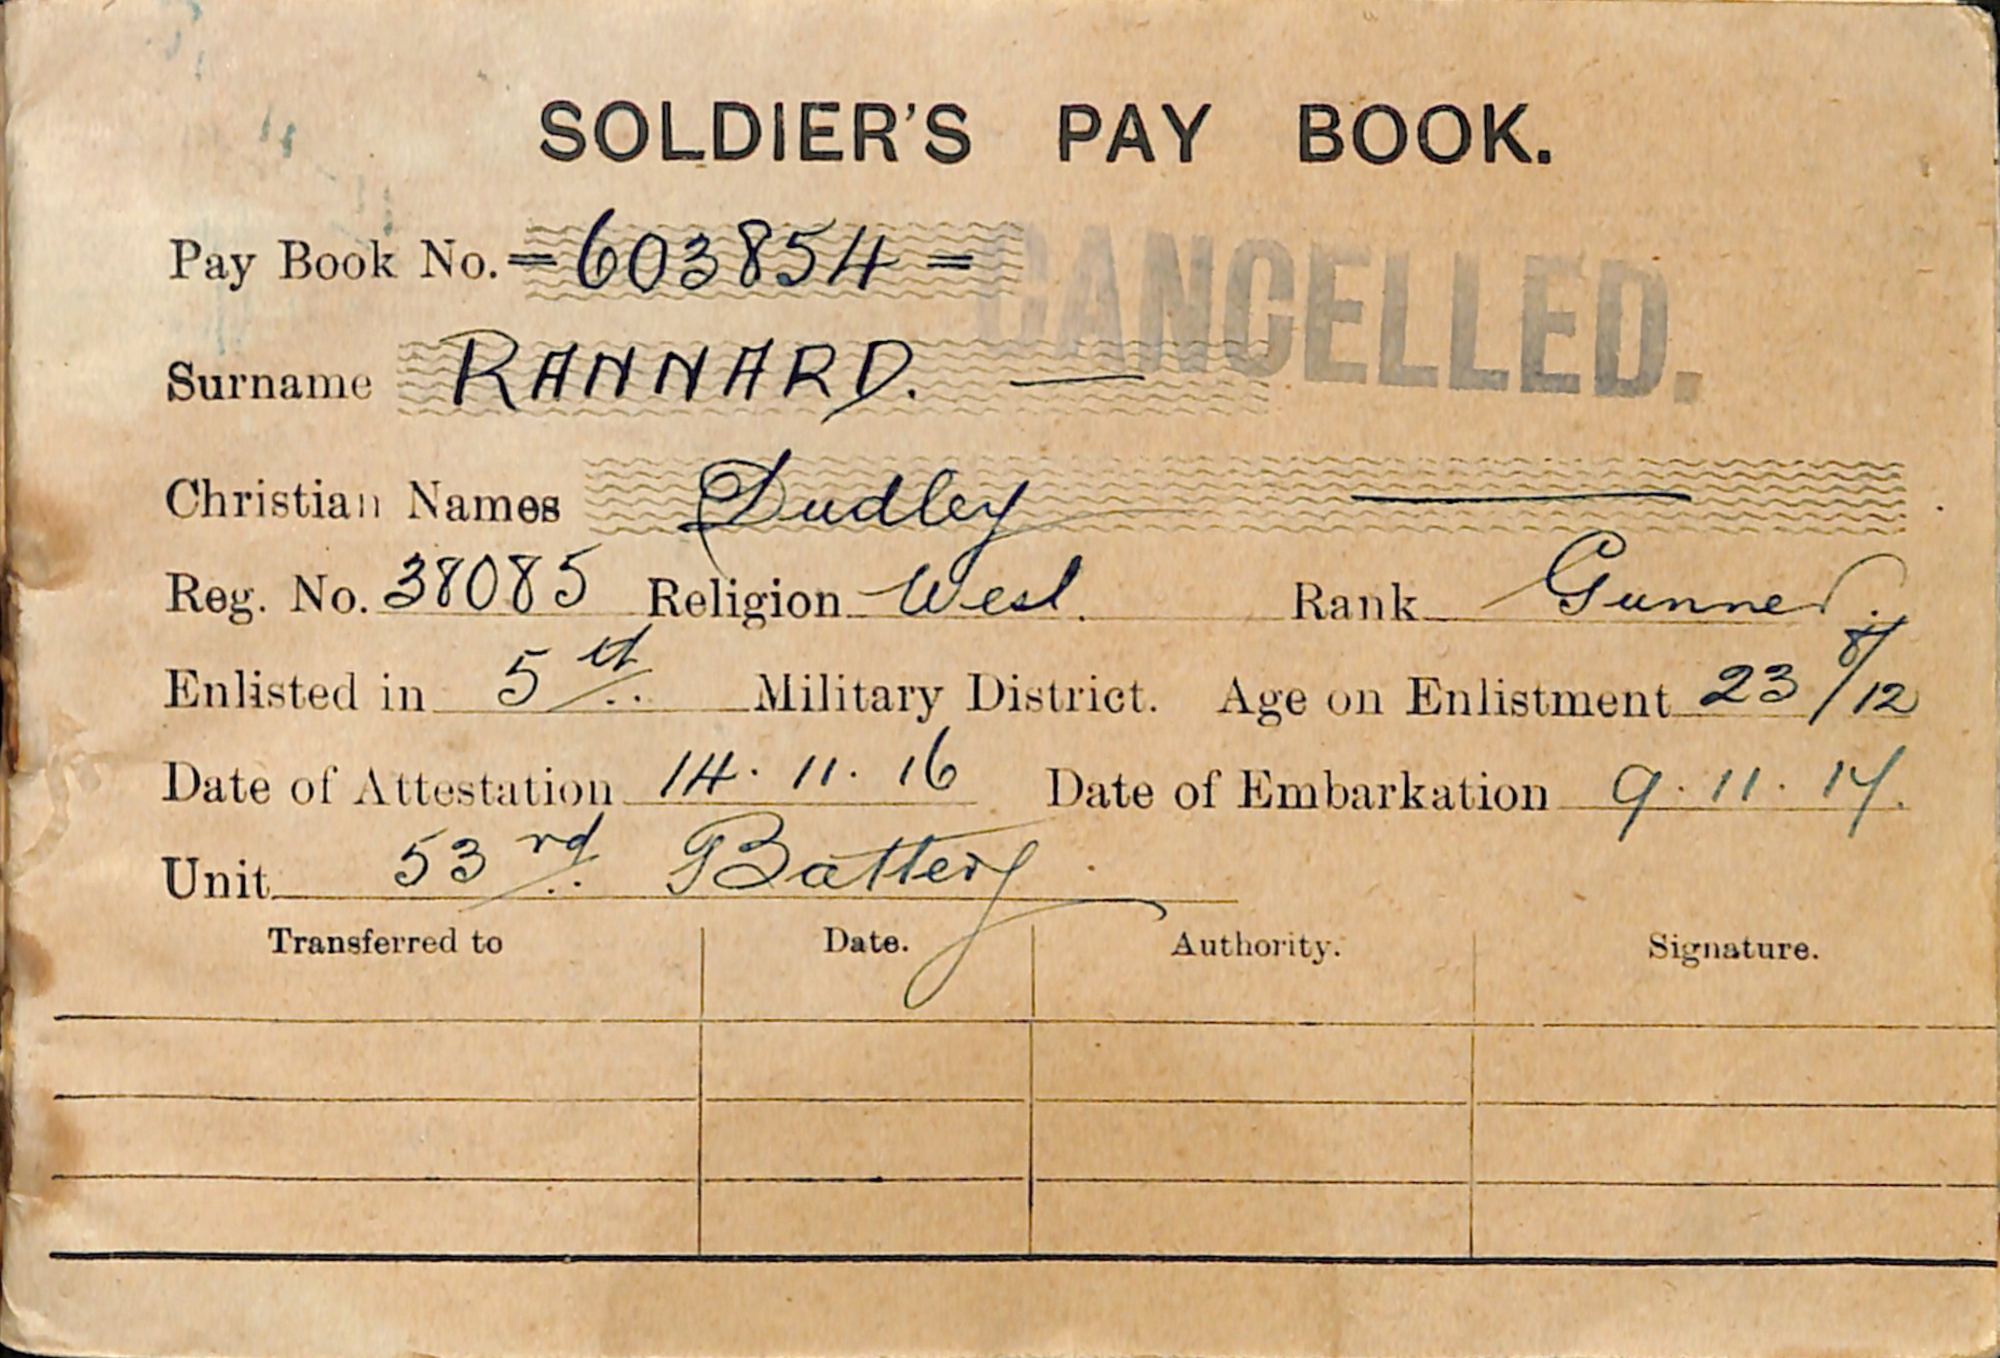 SOLDIER'S PAY BOOK.
Pay Book No. = 603854 =
CANCELLED.
Surname RANNARD. —
Christian Names Dudley —
Reg. No. 38085 Religion Wesl. Rank Gunner.
Enlisted in 5th Military District. Age on Enlistment 23 8/12
Date of Attestation 14. 11. 16 Date of Embarkation 9. 11. 17.
Unit 53rd Battery
Transferred to Date. Authority. Signature.